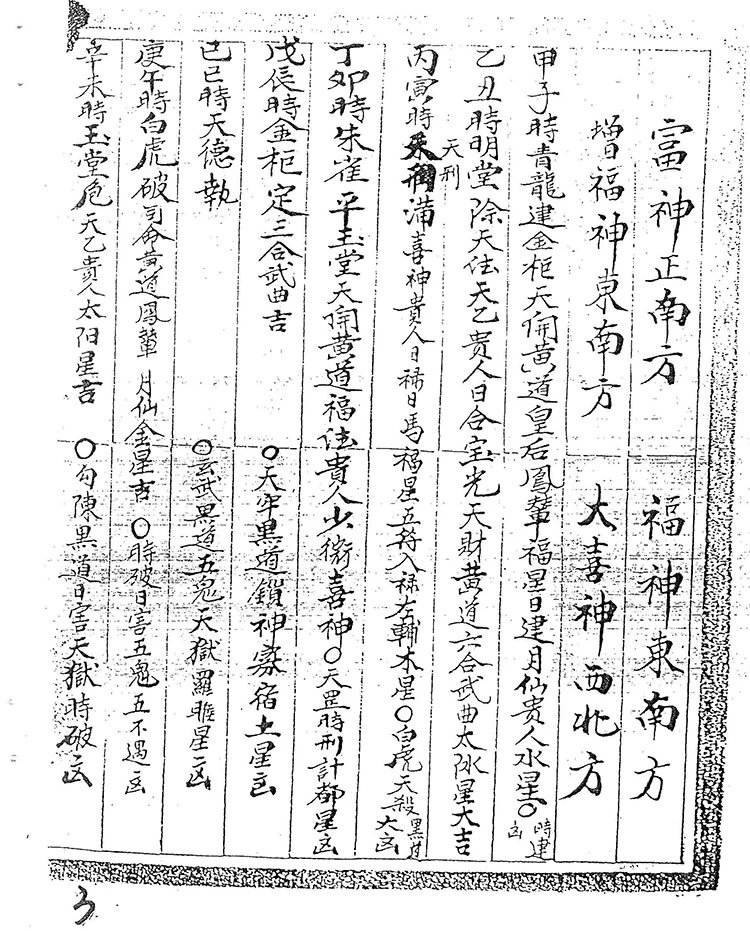 富神正南方 福神東南方
增福神東南方 大喜神西北方
甲子時青龍建金柜天開黄道皇后鳳輦福星日建月仙贵人水星〇時建凶
乙丑時明堂除天法天乙贵人日合宝光天財黄道六合武曲太阴星大吉
丙寅時天刑滿喜神貴人日禄日馬福星五符入禄左輔木星〇白虎天殺黑道大凶
丁卯時朱雀平玉堂天開黄道福法貴人少微喜神〇天罡時刑計都星凶
戊辰時金柜定三合武曲吉 〇天牢黑道鎖神寡宿土星凶
己巳時天德執 〇玄武黑道五鬼天獄羅睺星凶
庚午時白虎破司命黄道鳳輦月仙金星吉〇時破日害五鬼五不遇凶
辛未時玉堂危天乙貴人太阳星吉 〇勾陳黑道日害天獄時破凶
3